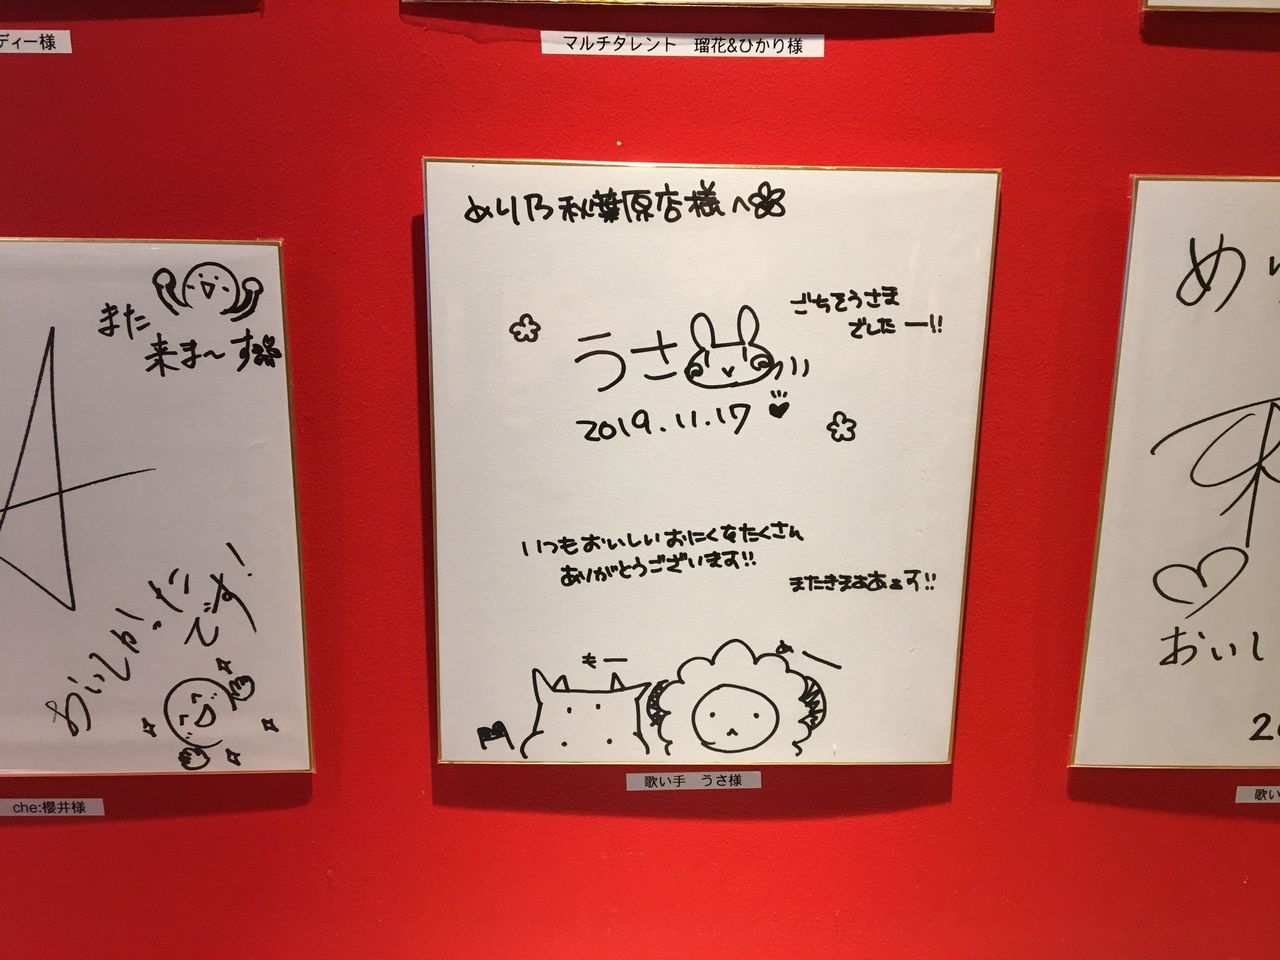 ディー様
マルチタレント 瑠花&ひかり様
また
来ま〜す
おいしかったです!
che:櫻井様
めり乃秋葉原店様へ
ごちそうさま
でしたー!!
うさ
2019.11.17
いつもおいしいおにくをたくさん
ありがとうございます!!
またきまぁあぁす!!
もー
めー
歌い手 うさ様
め
おいし
歌い